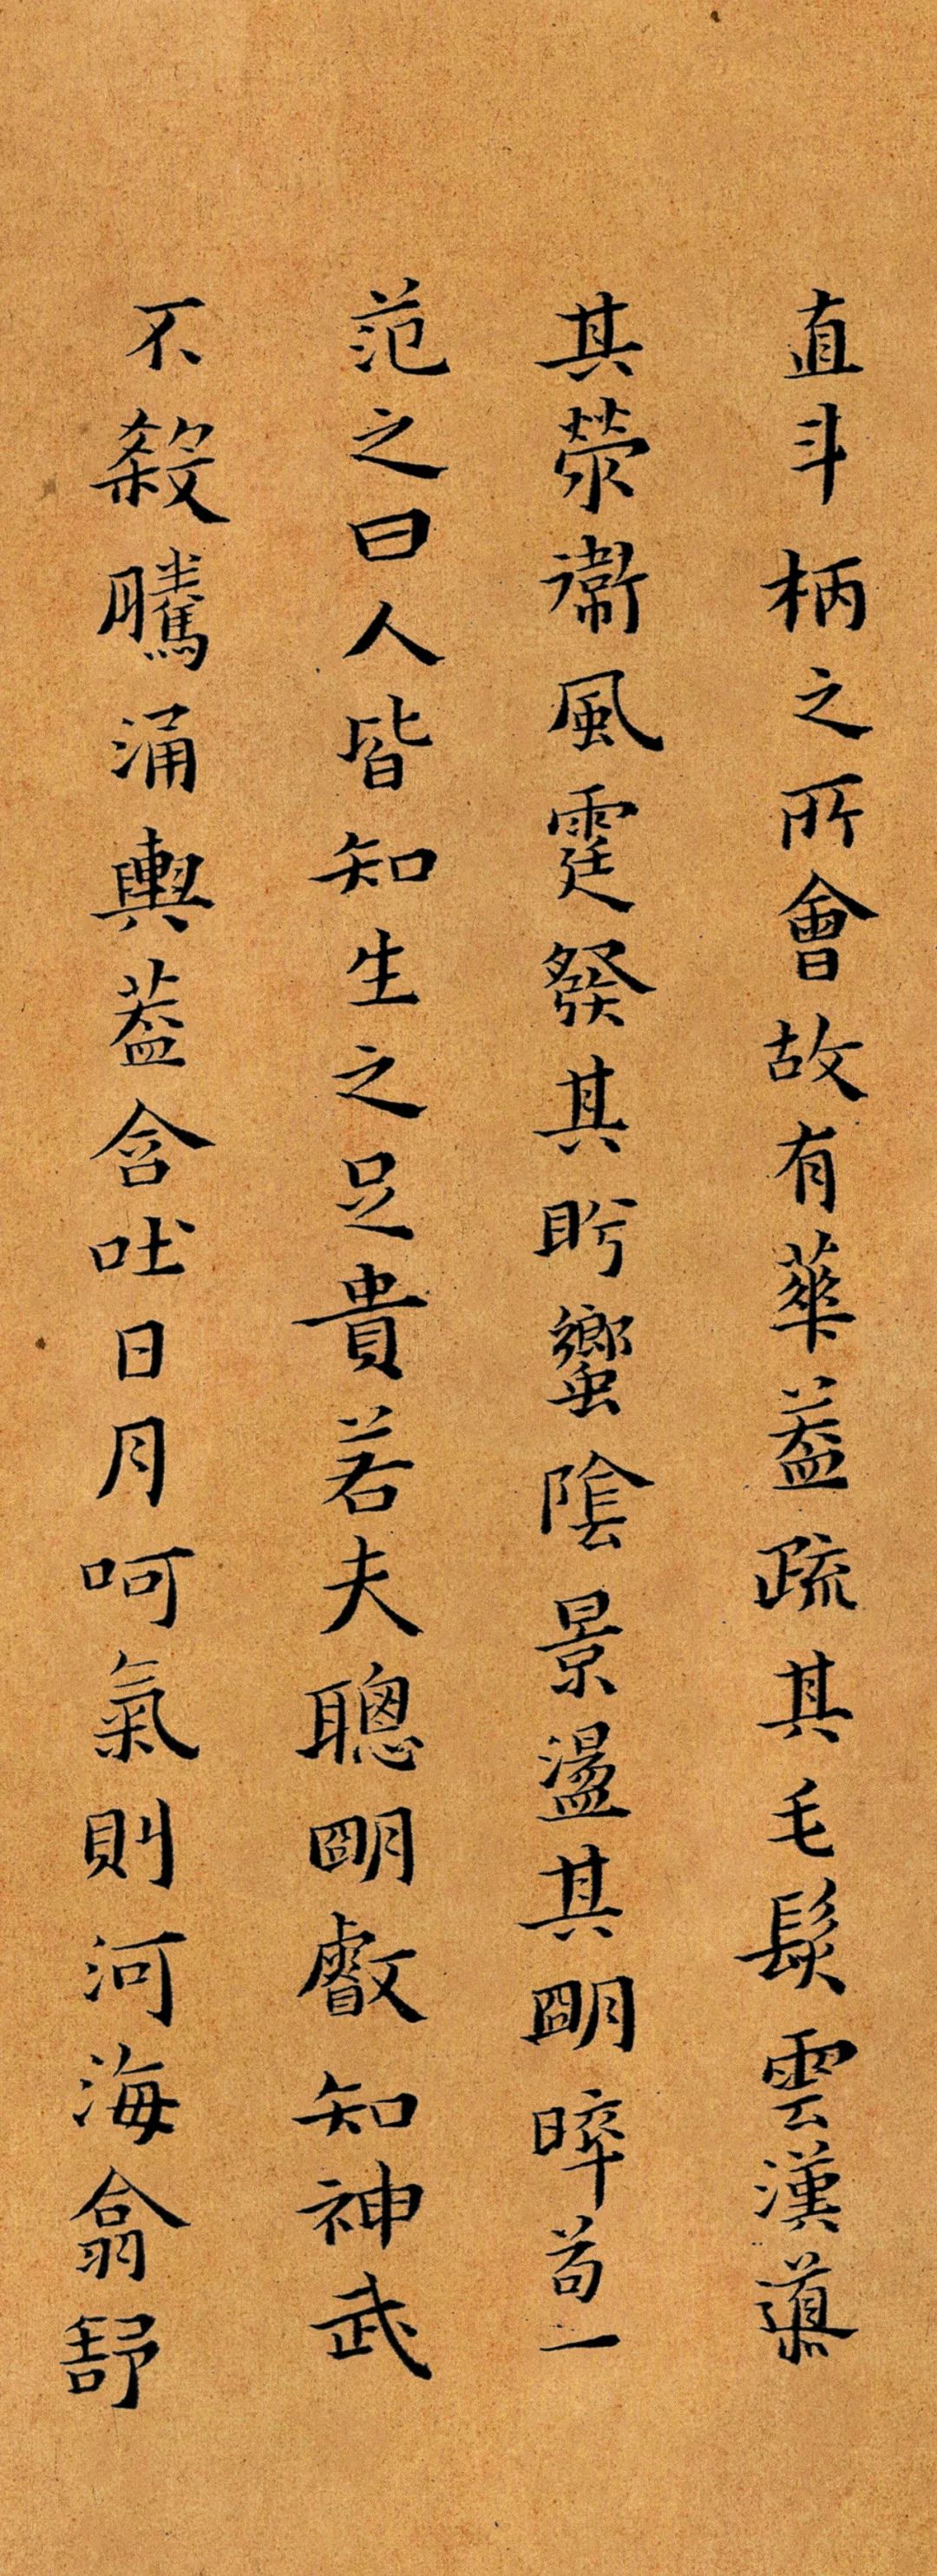 直斗柄之所會故有華蓋疏其毛髮雲漢導
其滎衛風霆發其肸蠁陰景盪其朙晬苟一
范之曰人皆知生之足貴若夫聰朙叡知神武
不殺騰涌輿蓋含吐日月呵氣則河海翕舒